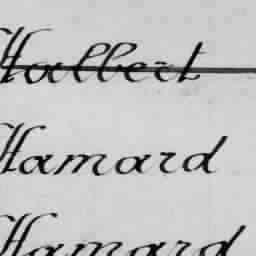 Halbert
Hamard
Hamard